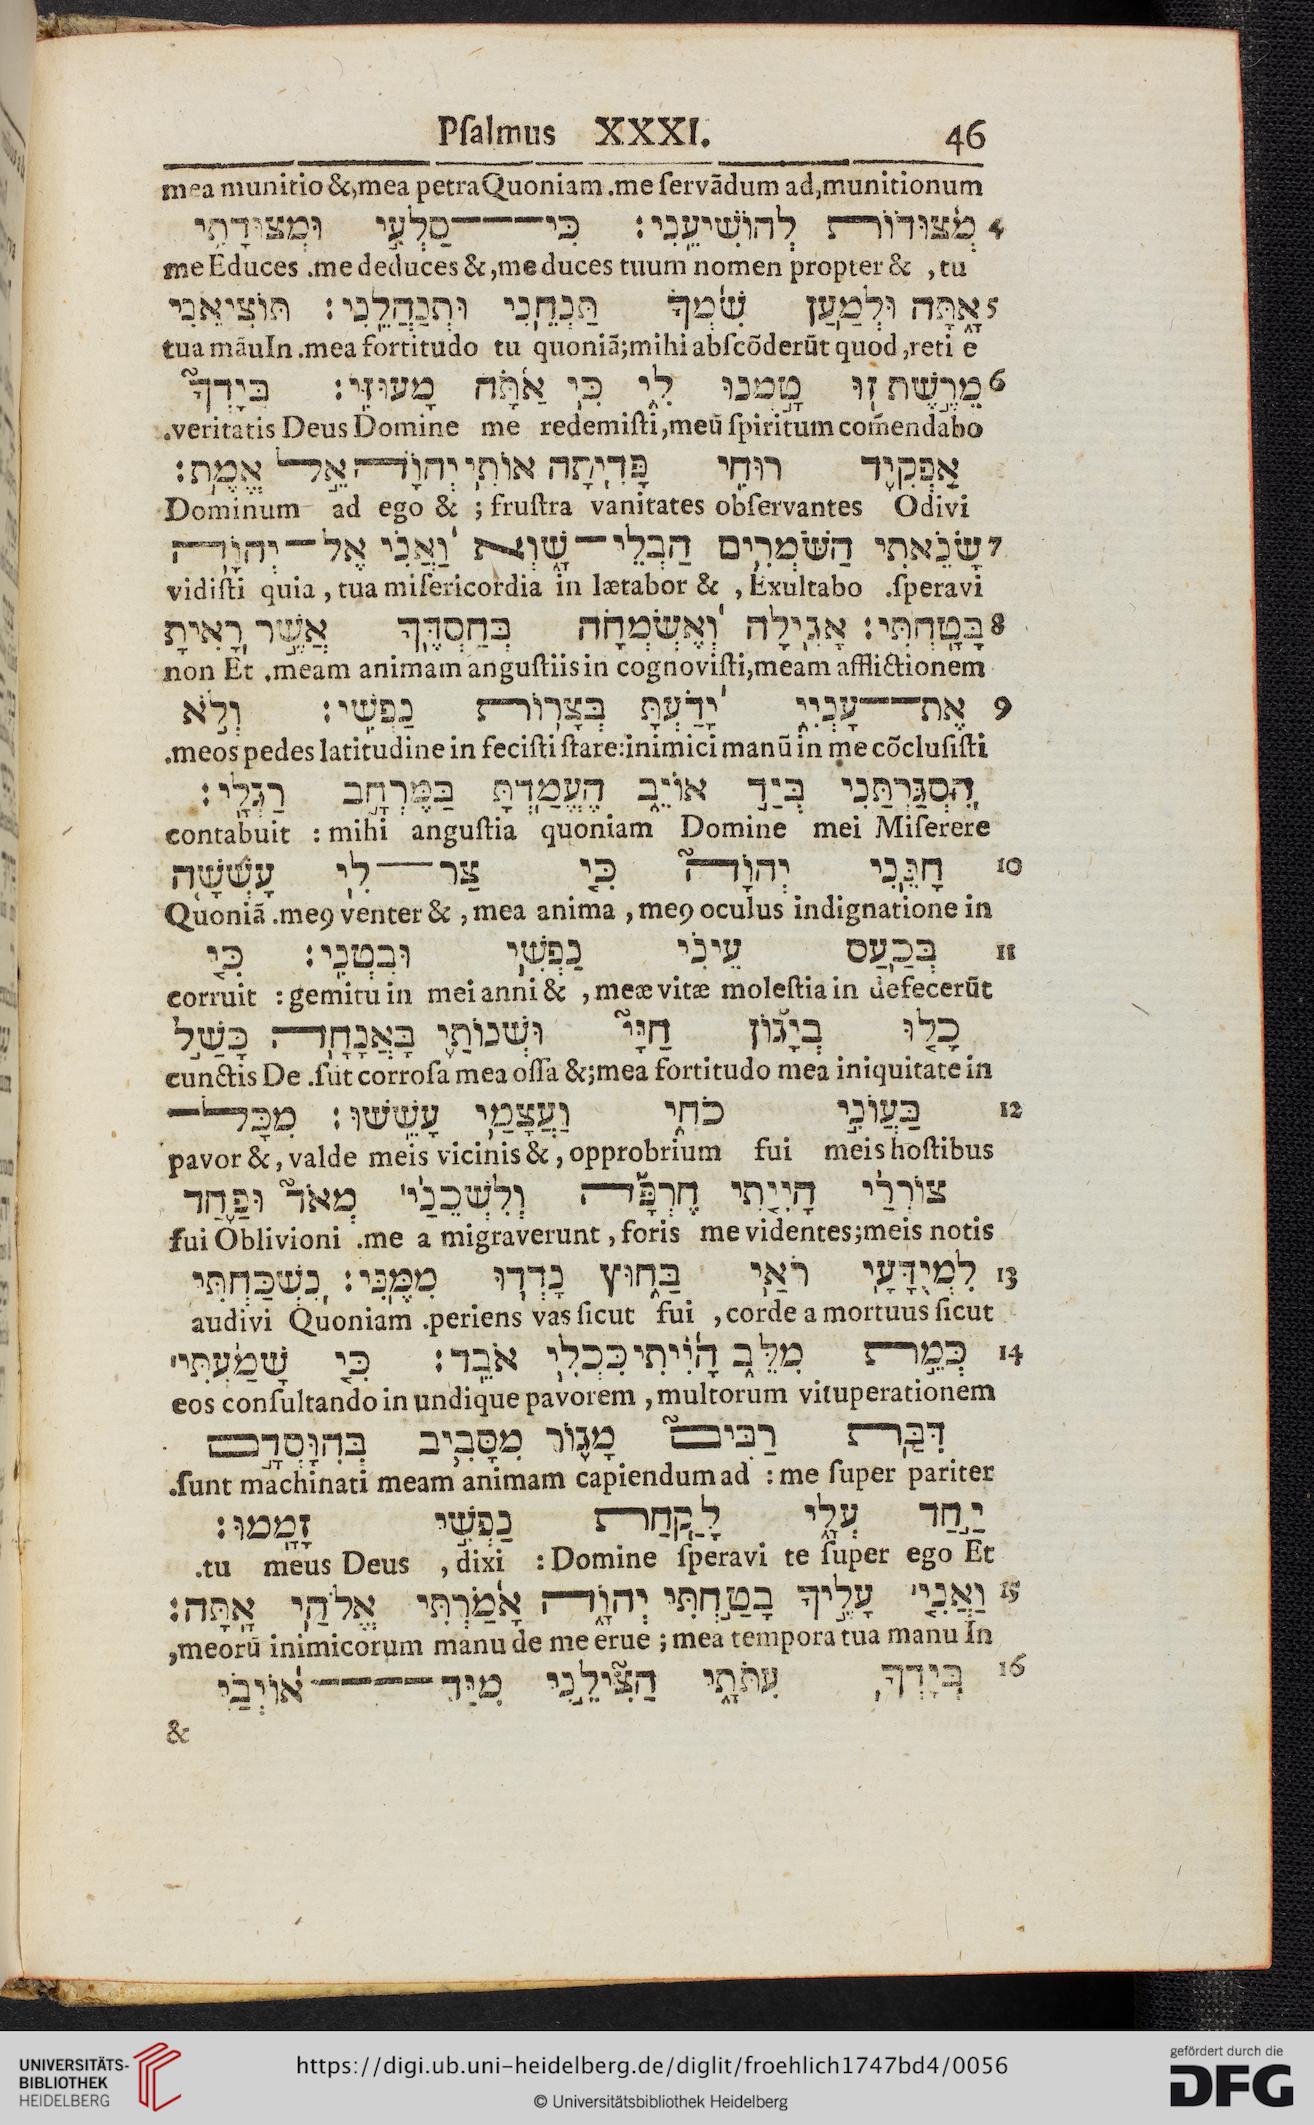 Pſalmus XXXI. 46
mea munitio &, mea petra Quoniam .me ſervãdum ad, munitionum
4 מְצוּדוֹת לְהוֹשִׁיעֵנִי׃ כִּי־סַלְעִי וּמְצוּדָתִי
me Educes .me deduces &, me duces tuum nomen propter & , tu
5 אָתָּה וּלְמַעַן שִׁמְךָ תַּנְחֵנִי וּתְנַהֲלֵנִי׃ תּוֹצִיאֵנִי
tua mãu In .mea fortitudo tu quoniã; mihi abſcõderũt quod , reti e
6 מֵרֶשֶׁת זוּ טָמְנוּ לִי כִּי אַתָּה מָעוּזִּי׃ בְּיָדְךָ
.veritatis Deus Domine me redemiſti, meũ ſpiritum com̃endabo
אַפְקִיד רוּחִי פָּדִיתָה אוֹתִי יְהוָֹה אֵל אֱמֶת׃
Dominum ad ego & ; fruſtra vanitates obſervantes Odivi
7 שָׂנֵאתִי הַשֹּׁמְרִים הַבְלֵי־שָׁוְא וַאֲנִי אֶל־יְהוָֹה
vidiſti quia , tua miſericordia in lætabor & , Exultabo .ſperavi
8 בָּטָחְתִּי׃ אָגִילָה וְאֶשְׂמְחָה בְּחַסְדֶּךָ אֲשֶׁר רָאִיתָ
non Et .meam animam anguſtiis in cognoviſti, meam afflictionem
9 אֶת־עָנְיִי יָדַעְתָּ בְּצָרוֹת נַפְשִׁי׃ וְלֹא
.meos pedes latitudine in feciſti ſtare: inimici manũ in me cõcluſiſti
הִסְגַּרְתַּנִי בְּיַד אוֹיֵב הֶעֱמַדְתָּ בַמֶּרְחָב רַגְלָי׃
contabuit : mihi anguſtia quoniam Domine mei Miſerere
10 חָנֵּנִי יְהוָֹה כִּי צַר־לִי עָשְׁשָׁה
Quoniã .meꝯ venter & , mea anima , meꝯ oculus indignatione in
11 בְּכַעַס עֵינִי נַפְשִׁי וּבִטְנִי׃ כִּי
corruit : gemitu in mei anni & , meæ vitæ moleſtia in defecerũt
כָלוּ בְיָגוֹן חַיַּי וּשְׁנוֹתַי בַּאֲנָחָה כָּשַׁל
cunctis De .ſũt corroſa mea oſſa &; mea fortitudo mea iniquitate in
12 בַּעֲוֹנִי כֹחִי וַעֲצָמַי עָשֵׁשׁוּ׃ מִכָּל־
pavor &, valde meis vicinis &, opprobrium fui meis hoſtibus
צוֹרְרַי הָיִיתִי חֶרְפָּה וְלִשְׁכֵנַי מְאֹד וּפַחַד
fui Oblivioni .me a migraverunt , foris me videntes; meis notis
13 לִמְיֻדָּעָי רֹאַי בַּחוּץ נָדְדוּ מִמֶּנִּי׃ נִשְׁכַּחְתִּי
audivi Quoniam .periens vas ſicut fui , corde a mortuus ſicut
14 כְּמֵת מִלֵּב הָיִיתִי כִּכְלִי אֹבֵד׃ כִּי שָׁמַעְתִּי
eos conſultando in undique pavorem , multorum vituperationem
דִּבַּת רַבִּים מָגוֹר מִסָּבִיב בְּהִוָּסְדָם
.ſunt machinati meam animam capiendum ad : me ſuper pariter
יַחַד עָלַי לָקַחַת נַפְשִׁי זָמָמוּ׃
.tu meus Deus , dixi : Domine ſperavi te ſuper ego Et
15 וַאֲנִי עָלֶיךָ בָטַחְתִּי יְהוָֹה אָמַרְתִּי אֱלֹהַי אָתָּה׃
,meorũ inimicorum manu de me erue ; mea tempora tua manu In
16 בְּיָדְךָ עִתֹּתָי הַצִּילֵנִי מִיַּד־אוֹיְבַי
&
UNIVERSITÄTS-
BIBLIOTHEK
HEIDELBERG
https://digi.ub.uni-heidelberg.de/diglit/froehlich1747bd4/0056
© Universitätsbibliothek Heidelberg
gefördert durch die
DFG